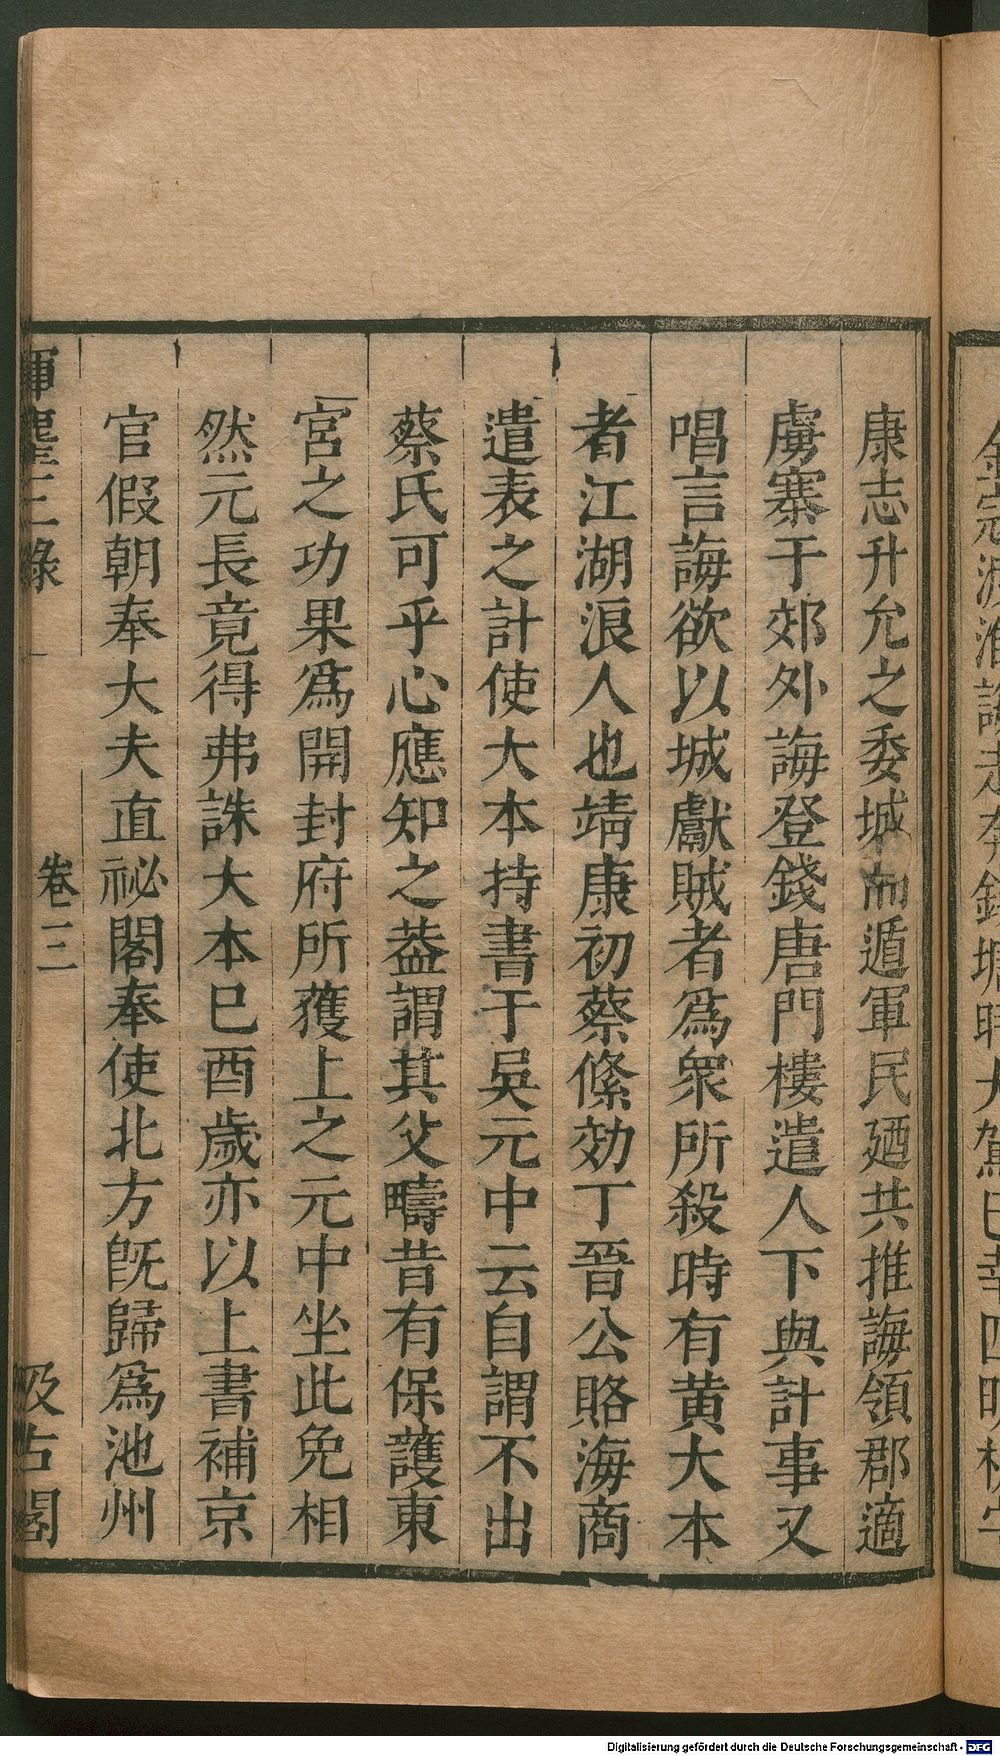 康志升允之委城而遁軍民廼共推誨領郡適
虜寨于郊外誨登錢唐門樓遣人下與計事又
唱言誨欲以城獻賊者爲衆所殺時有黄大本
者江湖浪人也靖康初蔡絛効丁晉公賂海商
遣表之計使大本持書于吳元中云自謂不出
蔡氏可乎心應知之葢謂其父疇昔有保護東
宮之功果爲開封府所獲上之元中坐此免相
然元長竟得弗誅大本巳酉歲亦以上書補京
官假朝奉大夫直祕閣奉使北方旣歸爲池州
揮麈三錄
卷三
汲古閣
Digitalisierung gefördert durch die Deutsche Forschungsgemeinschaft - DFG